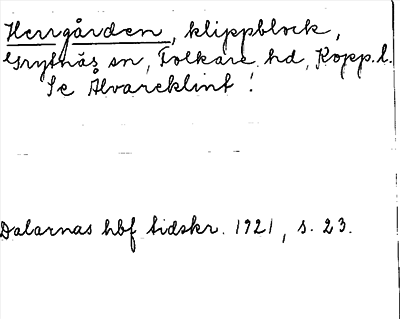 Herrgården, klippblock,
Grytnäs sn, Folkare hd, Kopp. l.
Se Älvareklint!
Dalarnas hbf tidskr. 1921, s. 23.